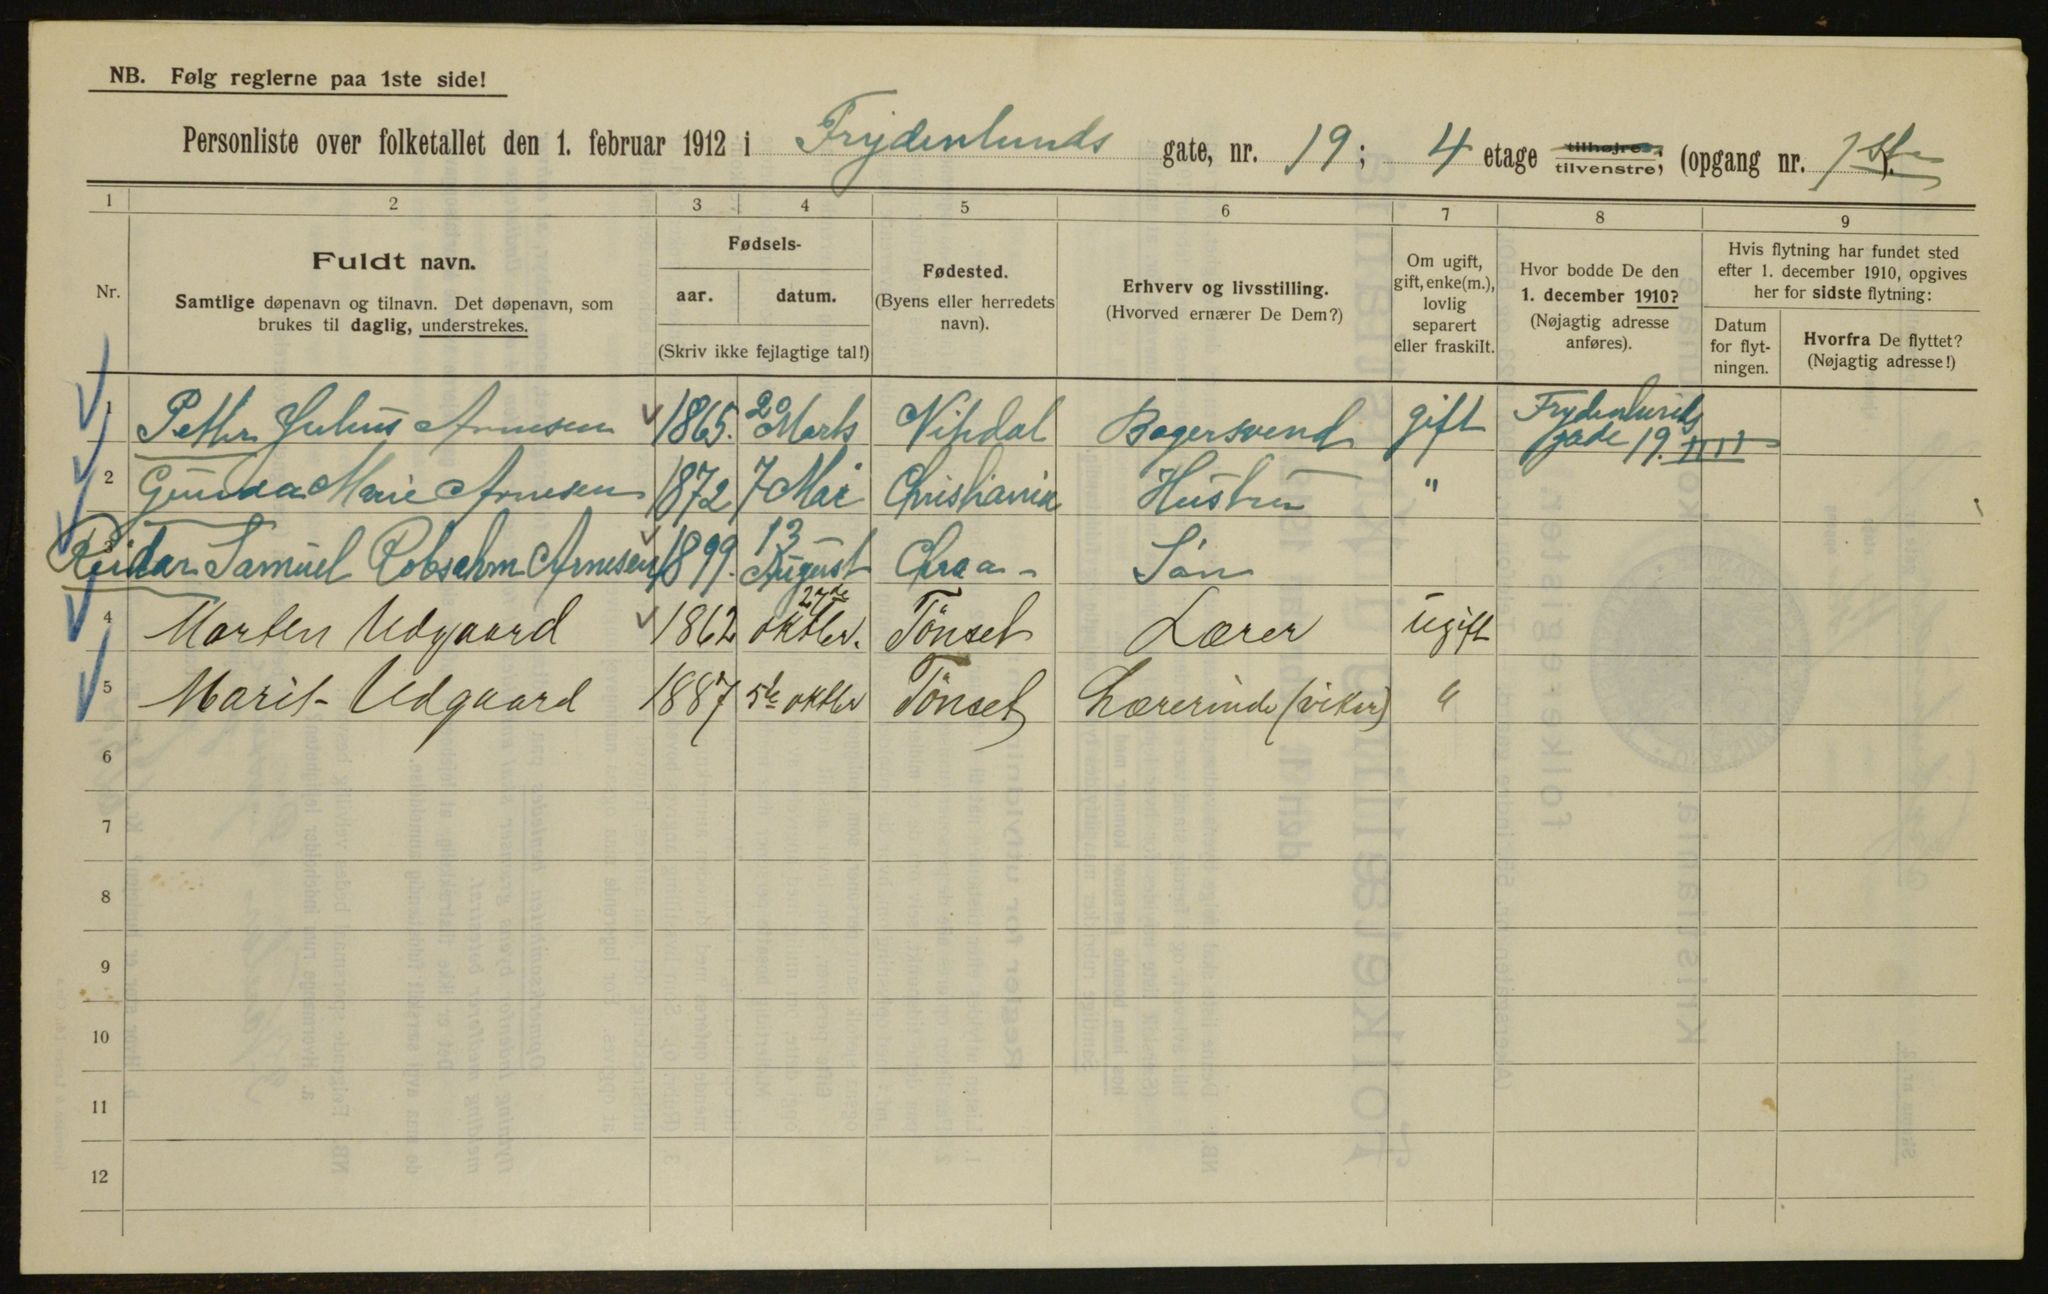 NB. Følg reglerne paa 1ste side!
Personliste over folketallet den 1. februar 1912 i Frydenlunds gate, nr. 19; 4 etage tilhøjre, tilvenstre, (opgang nr. 1ste).
1 2 3 4 5 6 7 8 9
Nr.
Fuldt navn.
Samtlige døpenavn og tilnavn. Det døpenavn, som
brukes til daglig, understrekes.
Fødsels-
aar. datum.
(Skriv ikke fejlagtige tal!)
Fødested.
(Byens eller herredets
navn).
Erhverv og livsstilling.
(Hvorved ernærer De Dem?)
Om ugift,
gift, enke(m.),
lovlig
separert
eller fraskilt.
Hvor bodde De den
1. december 1910?
(Nøjagtig adresse
anføres).
Hvis flytning har fundet sted
efter 1. december 1910, opgives
her for sidste flytning:
Datum
for flyt-
ningen.
Hvorfra De flyttet?
(Nøjagtig adresse!)
1 Petter Julius Arnesen 1865. 20 Marts Bagersvend gift Frydenlunds
gade 19. IIII
2 Gunda Marie Arnesen 1872 7 Mai Christiania Hustru "
3 Reidar Samuel Robsahm Arnesen 1899. 13 August Chraa- Søn
4 Morten Udgaard 1862 27de oktbr. Tönset Lærer Ugift
5 Marit Udgaard 1887 5te oktbr Tönset Lærerinde (vikar) "
6
7
8
9
10
11
12